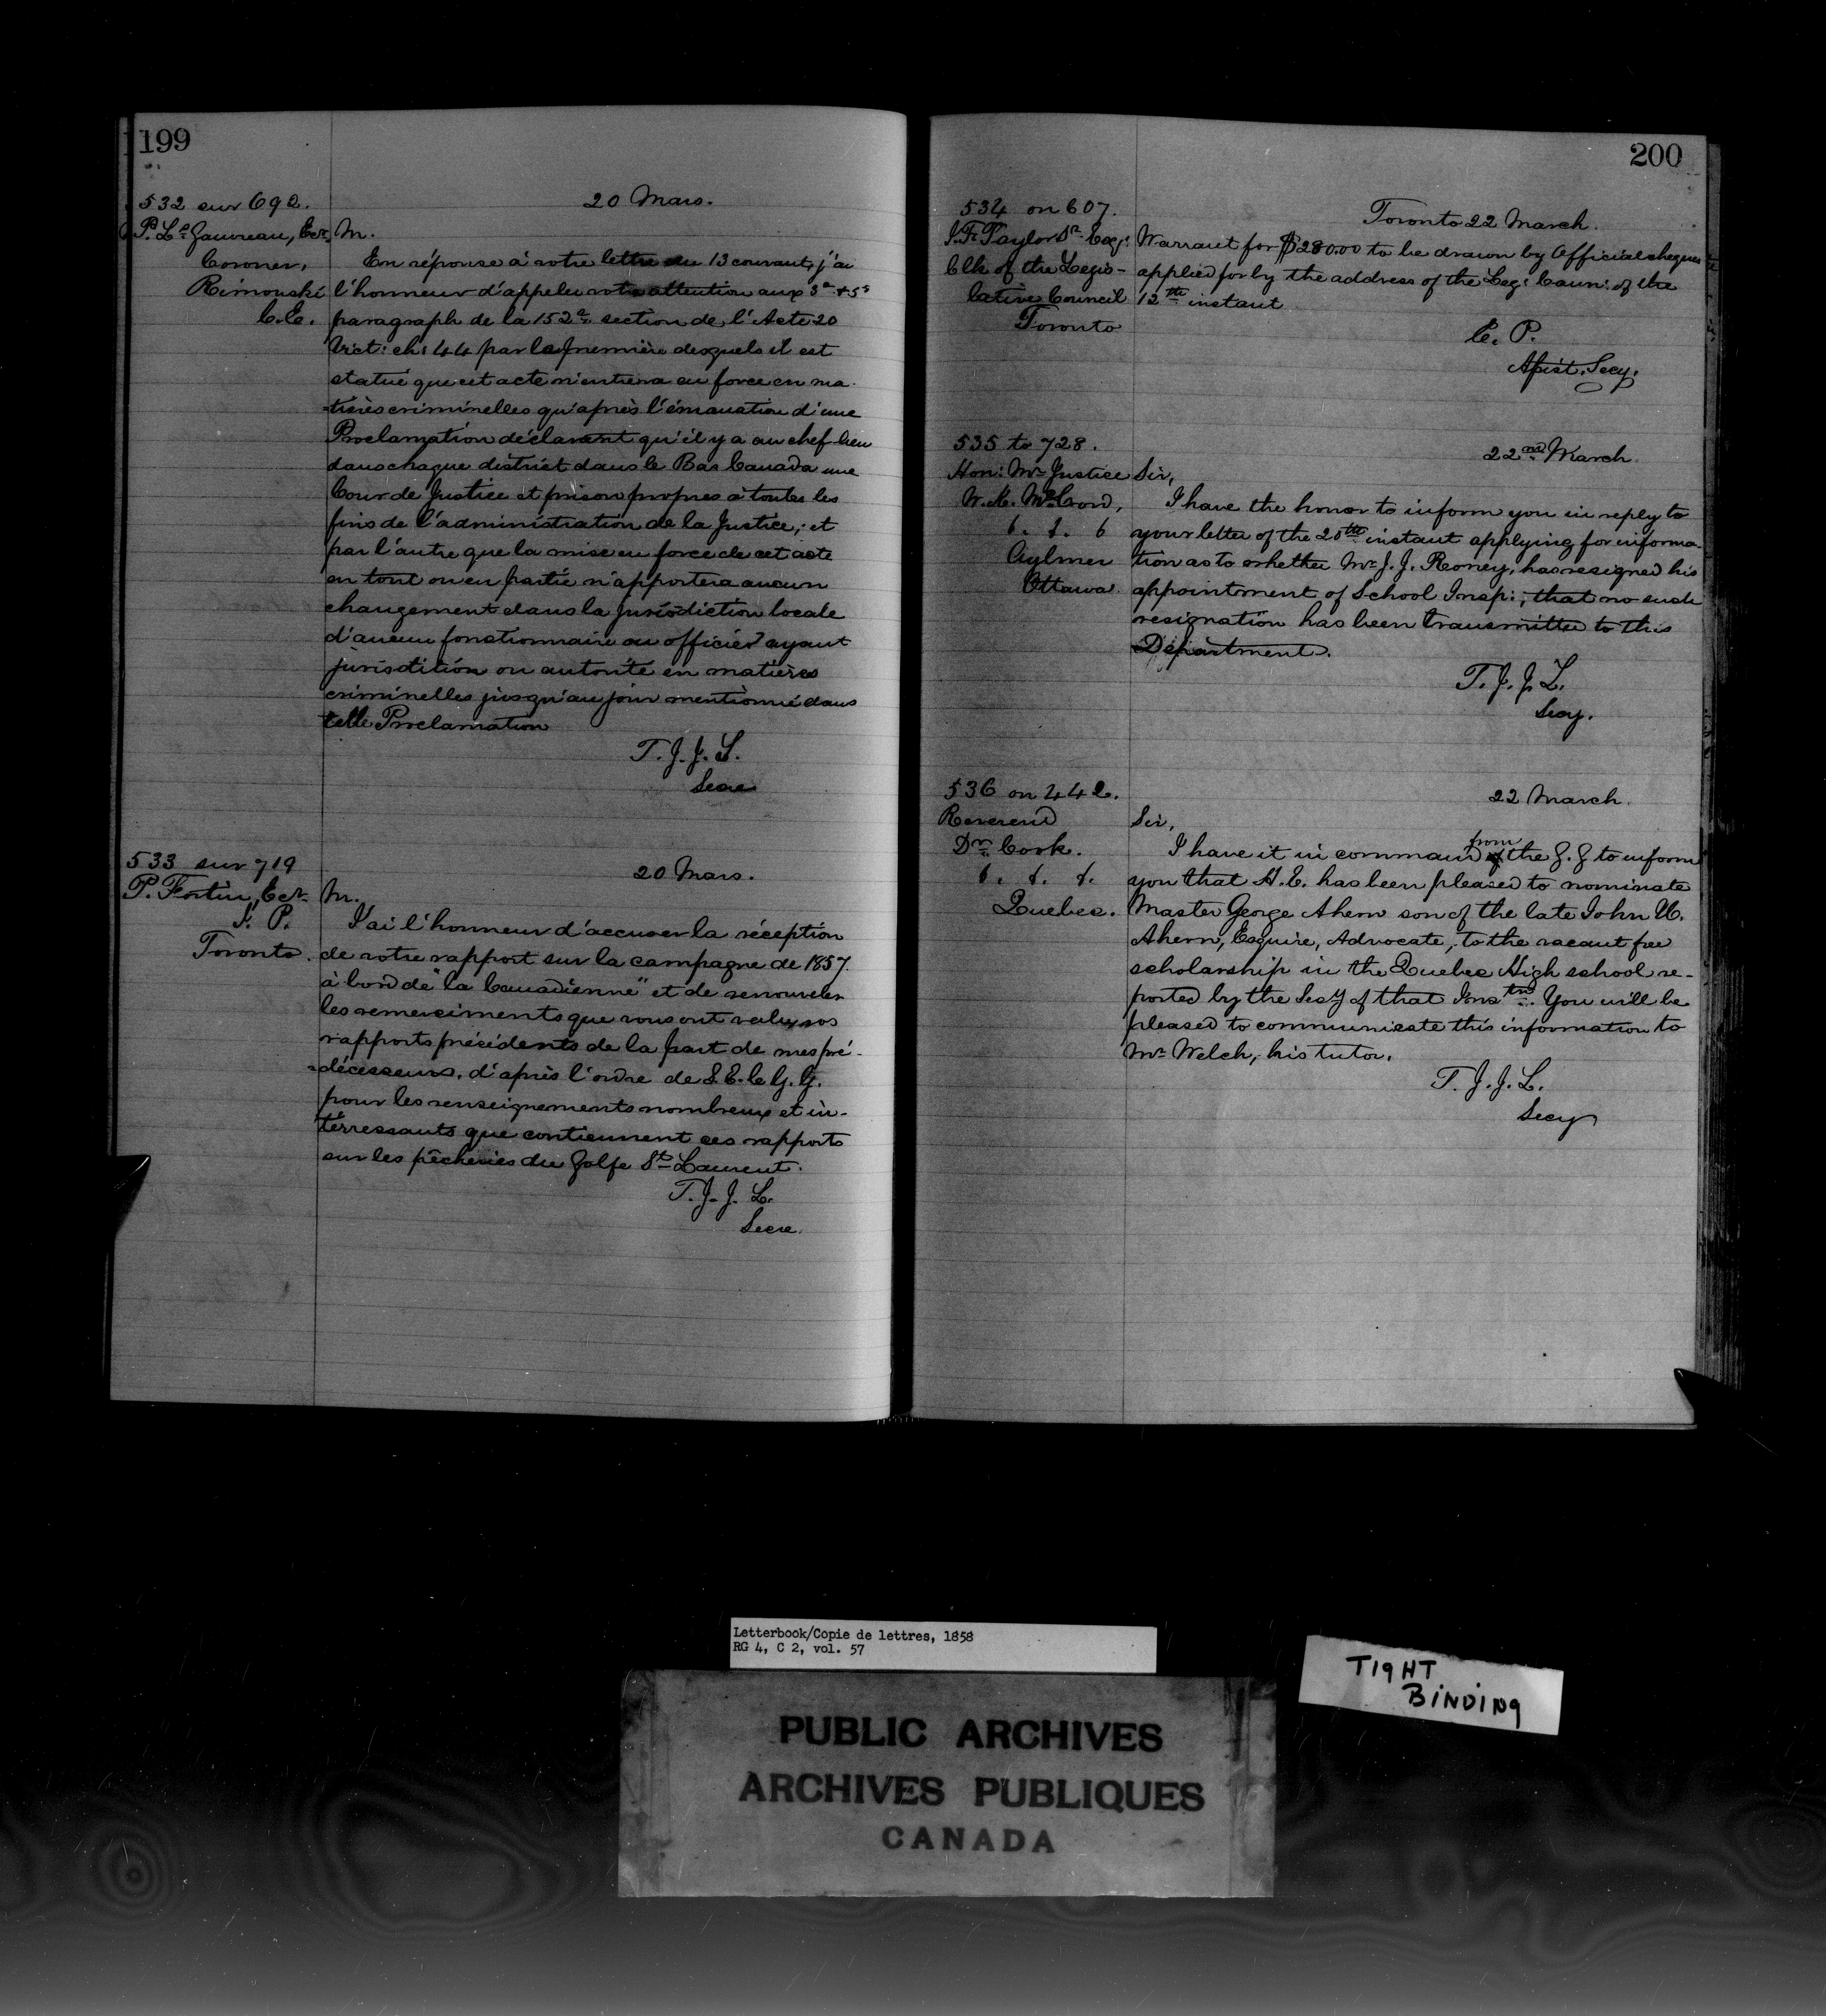 199
532 sur 692.
20 Mars.
P. Ls Gauvreau, Ecr.
Coroner,
Rimouski
C.E.
M.
En réponse à votre lettre du 13 courant, j'ai
l'honneur d'appeler votre attention aux 3e & 5e
paragraph de la 152e section de l'Acte 20
Vict: ch: 44 par la première desquels il est
statué que cet acte n'entrera en force en ma-
-tières criminelles qu'après l'émanation d'une
Proclamation déclarant qu'il y a au chef-lieu
dans chaque district dans le Bas Canada une
Cour de Justice et prison propres à toutes les
fins de l'administration de la Justice; et
par l'autre que la mise en force de cet acte
en tout ou en partie n'apportera aucun
changement dans la jurisdiction locale
d'aucun fonctionnaire ou officier ayant
jurisdition ou autorité en matières
criminelles jusqu'au jour mentionné dans
telle Proclamation
T. J. J. L.
Secre
533 sur 719
20 Mars.
P. Fortin, Ecr.
J. P.
Toronto.
M.
J'ai l'honneur d'accuser la réception
de votre rapport sur la campagne de 1857.
à bord de "la Canadienne" et de renouveler
les remerciments que vous ont valu vos
rapports précédents de la part de mes pré-
-décesseurs, d'après l'ordre de S. E. le G. G.
pour les renseignements nombreux et in-
térressants que contiennent ces rapports
sur les pêcheries du Golfe St Laurent.
T. J. J. L.
Secre
200
534 on 607.
Toronto 22 March.
J. F. Taylor Sr. Esq:
Clk of the Legis-
lative Council
Toronto
Warrant for $28000 to be drawn by Official cheques
applied for by the address of the Leg: Coun: of the
12th instant
E. P.
Assist. Secy.
535 to 728.
22nd March
Hon: Mr Justice
W. K. McCord,
&. &. &
Aylmer
Ottawa.
Sir,
I have the honor to inform you in reply to
your letter of the 20th instant applying for informa-
tion as to whether Mr J. J. Roney, has resigned his
appointment of School Insp:, that no such
resignation has been transmitted to this
Department.
T. J. J. L.
Secy.
536 on 442.
22 March.
Reverend
Dr. Cook.
&. &. &.
Quebec.
Sir,
I have it in command from the G. G to inform
you that H. E. has been pleased to nominate
Master George Ahern son of the late John
Ahern, Esquire, Advocate, to the vacant free
scholarship in the Quebec High school re-
ported by the Secy of that Instn. You will be
pleased to communicate this information to
Mr Welch, his tutor.
T. J. J. L.
Secy
Letterbook/Copie de lettres, 1858
RG 4, C 2, vol. 57
TIGHT
BINDING
PUBLIC ARCHIVES
ARCHIVES PUBLIQUES
CANADA